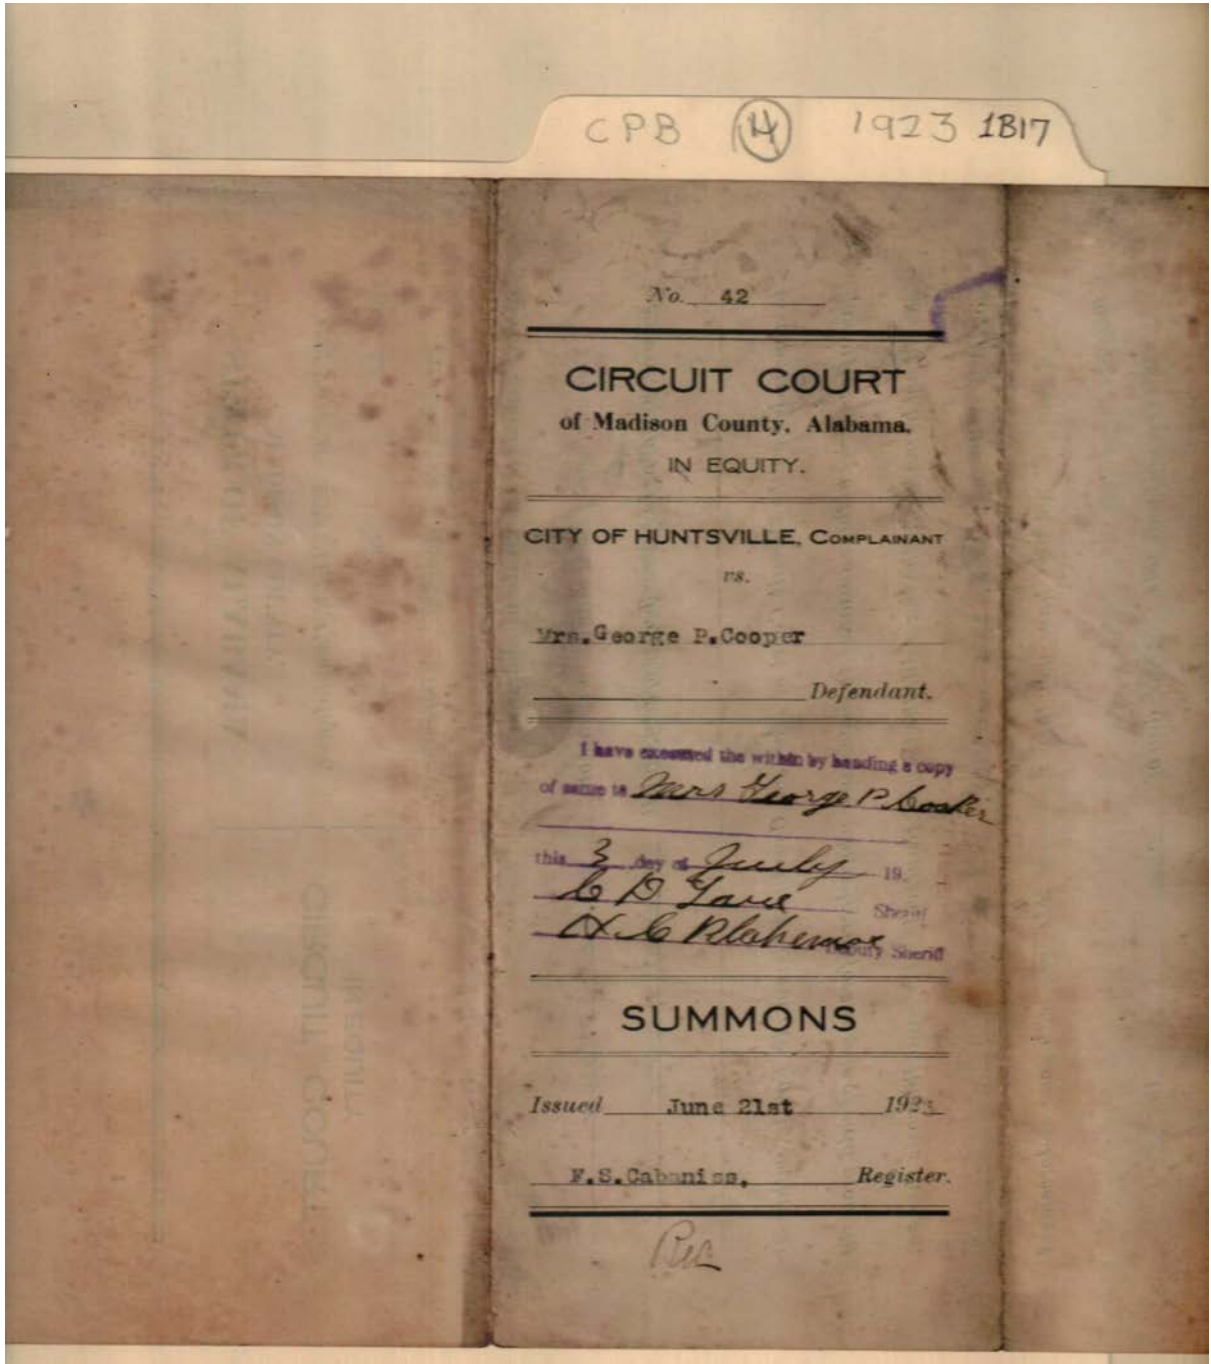 CPB 4 1923 1B17
No. 42
CIRCUIT COURT
of Madison County, Alabama.
IN EQUITY.
CITY OF HUNTSVILLE, COMPLAINANT
vs.
Mrs.George P.Cooper
Defendant.
I have executed the within by handing a copy
of same to Mrs George P Cooper
this 3 day of July 19
C D Sheriff
H C Deputy Sheriff
SUMMONS
Issued June 21st 192
F.S.Cabaniss, Register.
Rec